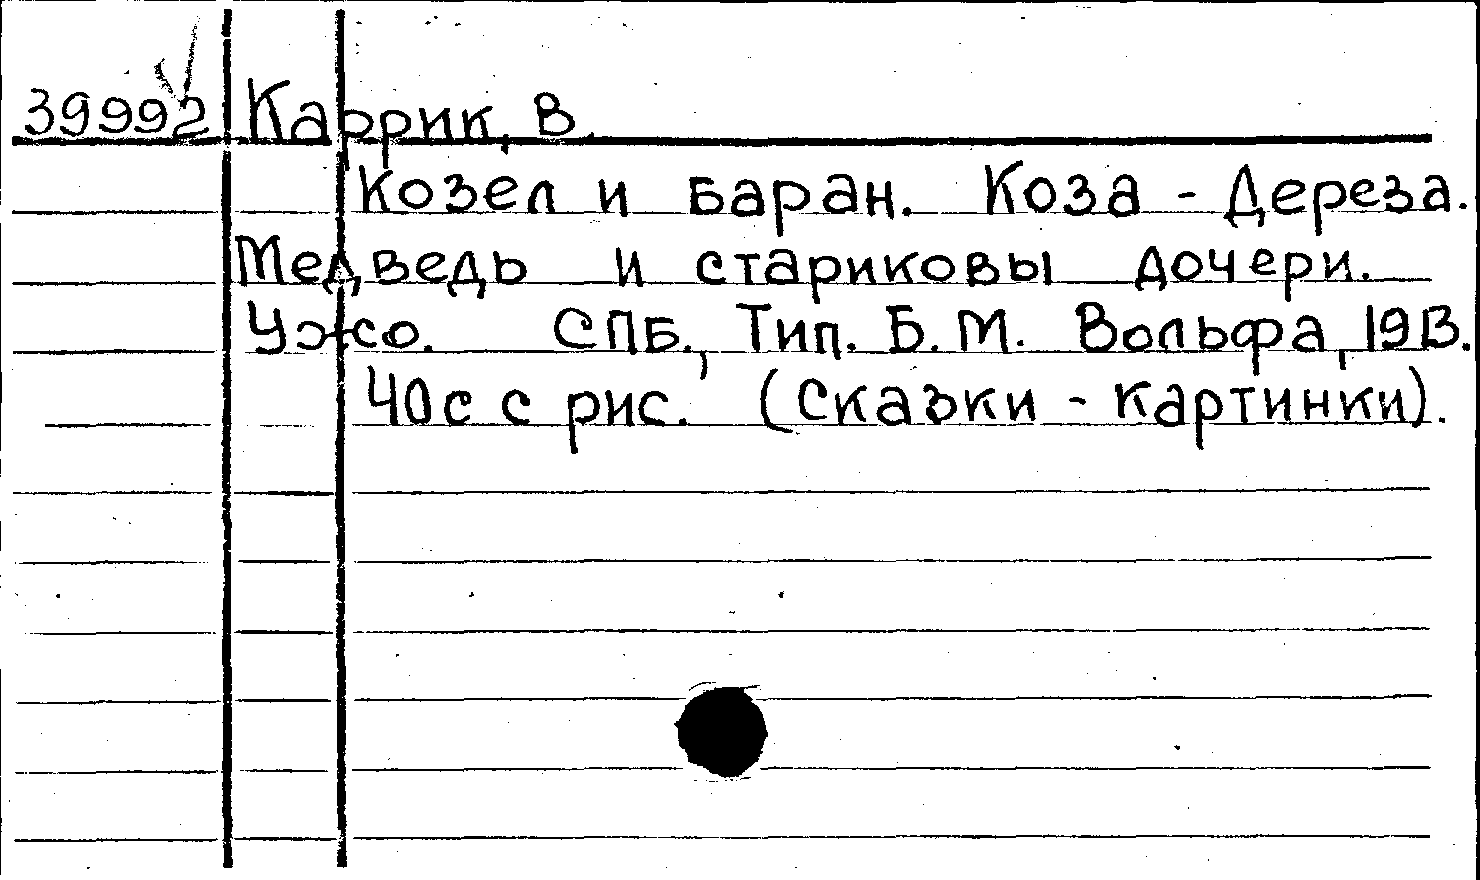 39992 Каррик, В.
Козел и баран. Коза - Дереза.
Медведь и стариковы дочери.
Ужо. СПБ., Тип. Б. М. Вольфа, 1913.
40с с рис. (Сказки - картинки).